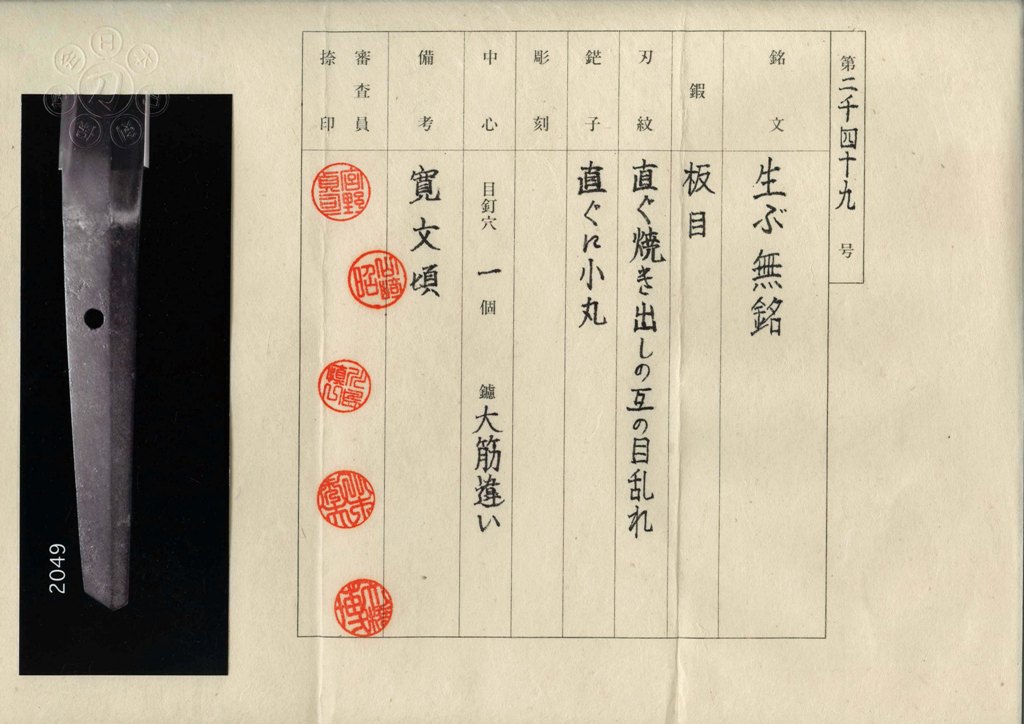 第二千四十九号
銘文
生ぶ無銘
鍜
板目
刃紋
直ぐ焼き出しの互の目乱れ
鋩子
直ぐに小丸
彫刻
中心
目釘穴 一 個 鑢 大筋違い
備考
寛文頃
審査員
捺印
2049